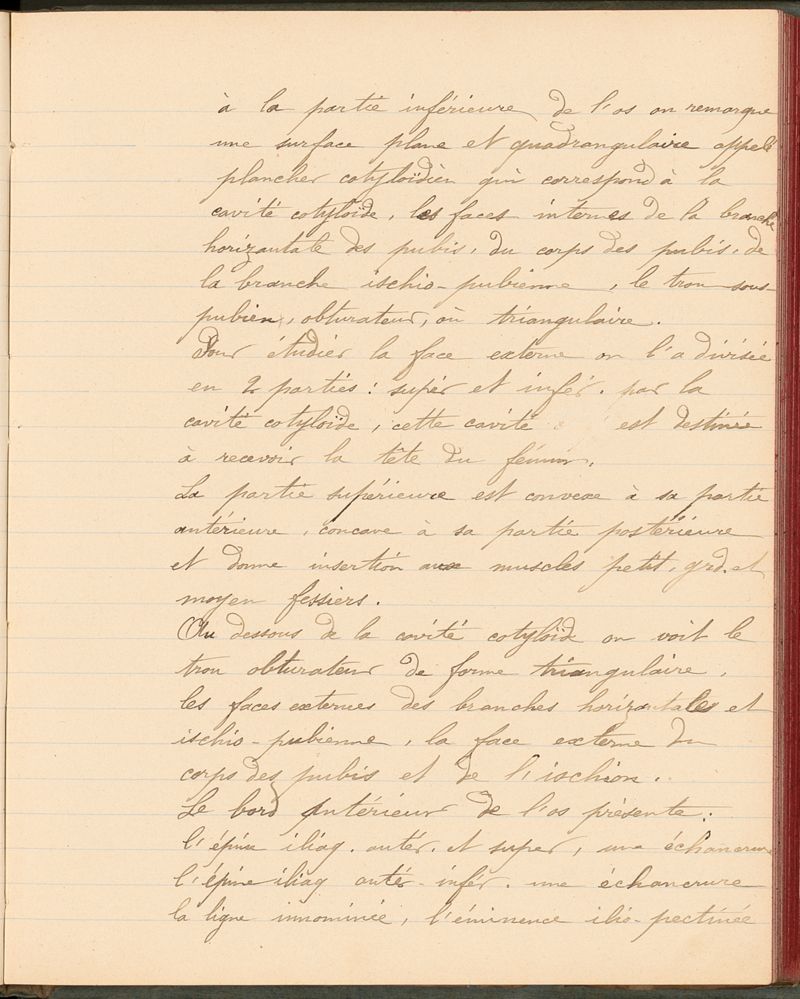 à la partie inférieure de l'os on remarque
une surface plane et quadrangulaire appelé
plancher cotyloïdien qui correspond à la
cavité cotyloïde, les faces internes de la branche
horizontale des pubis, du corps des pubis, de
la branche ischio-pubienne, le trou sous-
pubien, obturateur, où triangulaire.
Pour étudier la face externe on l'a divisée
en 2 parties : supér et infér. par la
cavité cotyloïde, cette cavité est destinée
à recevoir la tête du fémur.
La partie supérieure est convexe à sa partie
antérieure, concave à sa partie postérieure
et donne insertion aux muscles petit, grd. et
moyen fessiers.
Au dessous de la cavité cotyloïde on voit le
trou obturateur de forme triangulaire,
les faces externes des branches horizontales et
ischio-pubienne, la face externe du
corps des pubis et de l'ischion.
Le bord antérieur de l'os présente :
l'épine iliaq. antér. et super, une échancrure
l'épine iliaq antér-infér. une échancrure
la ligne innominée, l'éminence ilio-pectinée